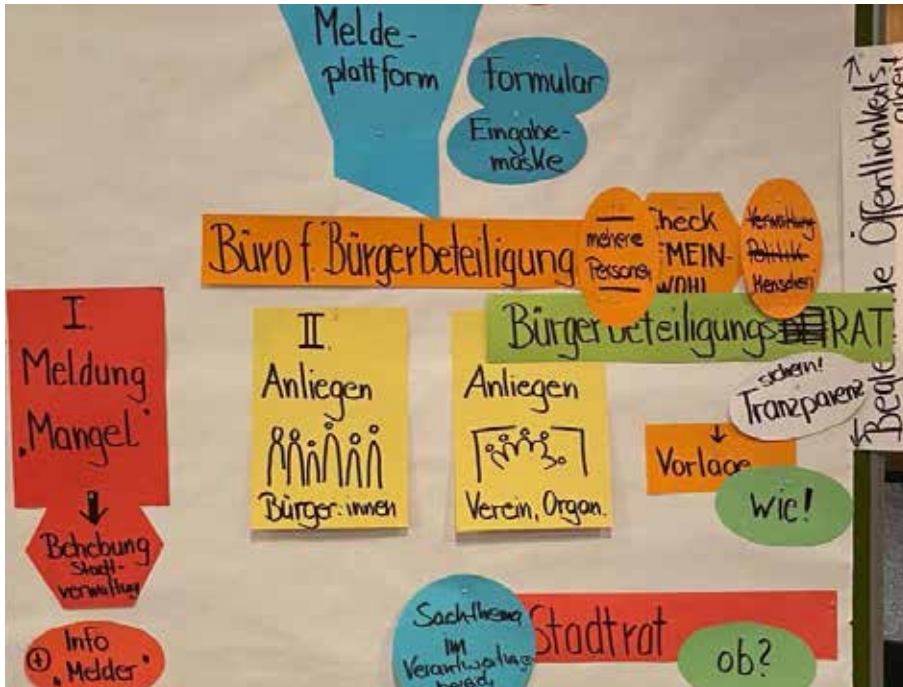 Melde-
plattform
Formular
Eingabe-
maske
Büro f. Bürgerbeteiligung
mehere
Personen
heck
EMEIN-
WOHL
Verwaltung
Politik
Menschen
Bürgerbeteiligungs RAT
sichern!
Tranzparenz
Vorlage
Wie!
I.
Meldung
„Mangel"
Behebung
Stadt-
verwaltung
+ Info
„Melder"
II.
Anliegen
Bürger:innen
Anliegen
Verein, Organ.
Sachthema
im
Verantwortungs
Stadtrat
ob?
Öffentlichkeits